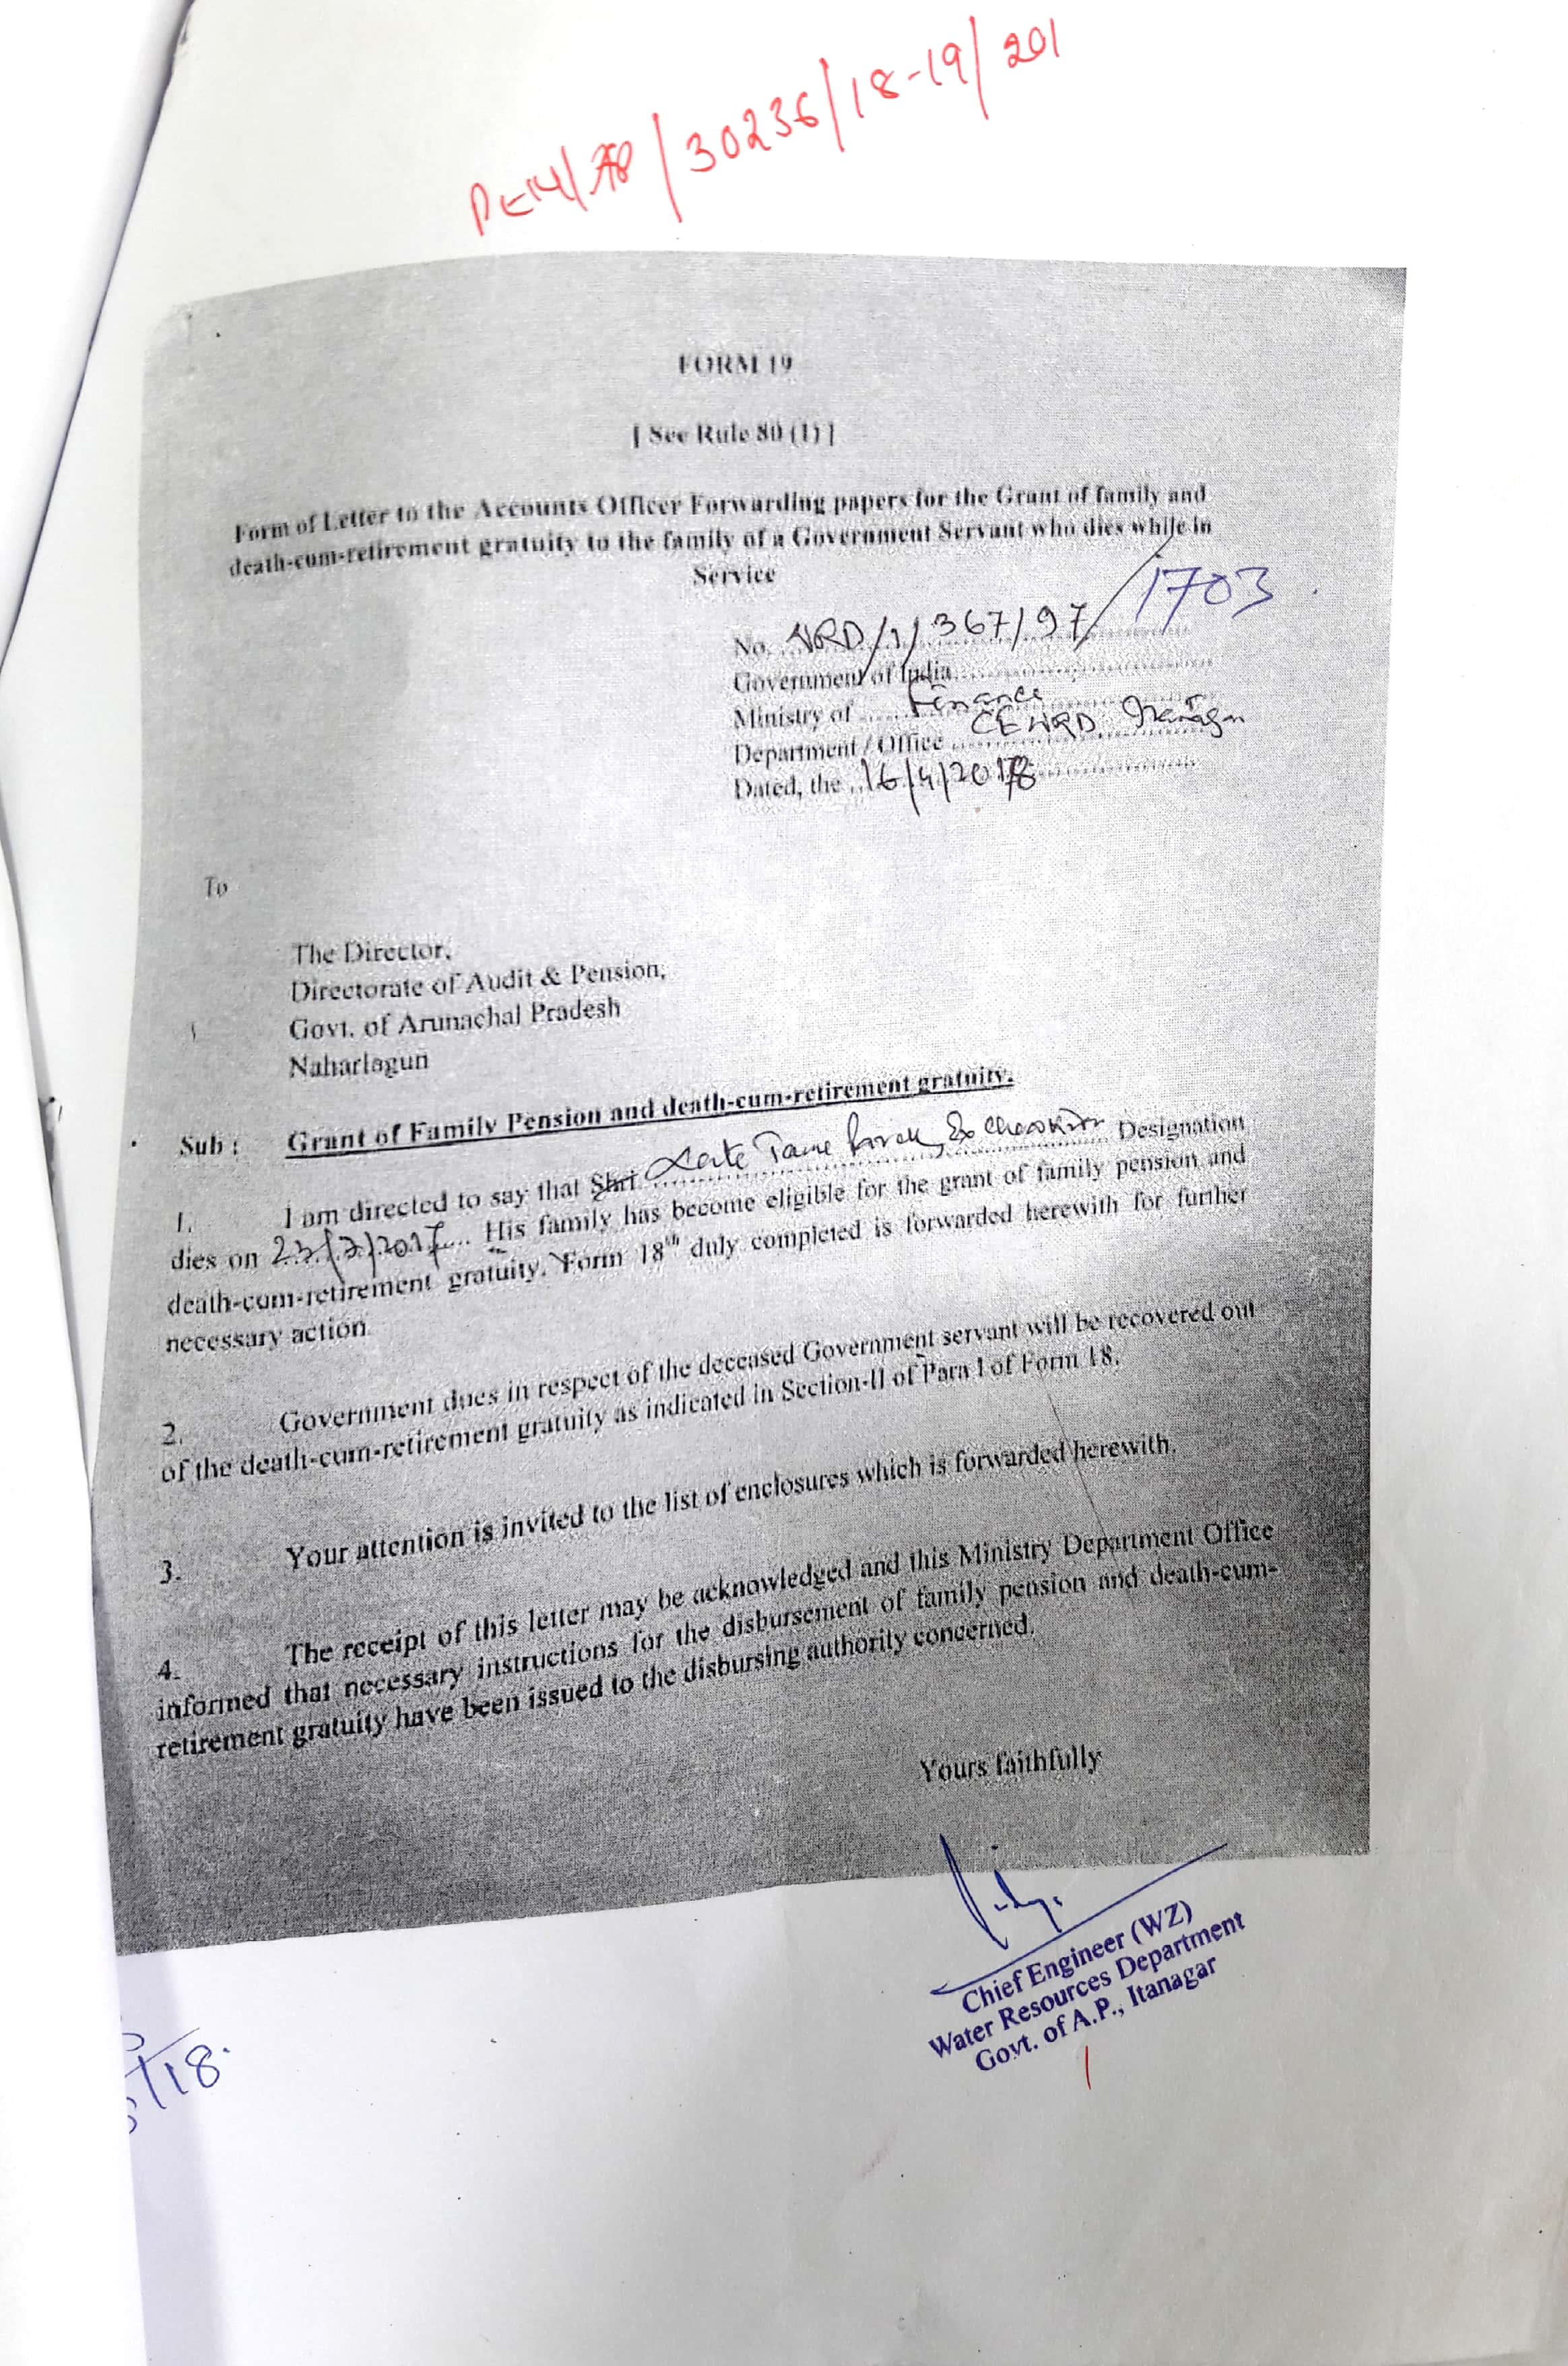 /30236/18-19/201
FORM 19
[ See Rule 80 (1) ]
Form of Letter to the Accounts Officer Forwarding papers for the Grant of family and
death-cum-retirement gratuity to the family of a Government Servant who dies while in
Service
No. WRD/1/367/97/1703
Government of India
Ministry of Finance
Department / Office CE WRD, Itanagar
Dated, the 16/4/2018
To
The Director,
Directorate of Audit & Pension,
Govt. of Arunachal Pradesh
Naharlagun
Sub : Grant of Family Pension and death-cum-retirement gratuity.
1. I am directed to say that Shri Late Tame Ex Chowkidar Designation
dies on 23/7/2017 His family has become eligible for the grant of family pension and
death-cum-retirement gratuity. Form 18th duly completed is forwarded herewith for further
necessary action
2. Government dues in respect of the deceased Government servant will be recovered out
of the death-cum-retirement gratuity as indicated in Section-II of Para I of Form 18.
3. Your attention is invited to the list of enclosures which is forwarded herewith.
4. The receipt of this letter may be acknowledged and this Ministry Department Office
informed that necessary instructions for the disbursement of family pension and death-cum-
retirement gratuity have been issued to the disbursing authority concerned.
Yours faithfully
Chief Engineer (WZ)
Water Resources Department
Govt. of A.P., Itanagar
/18.